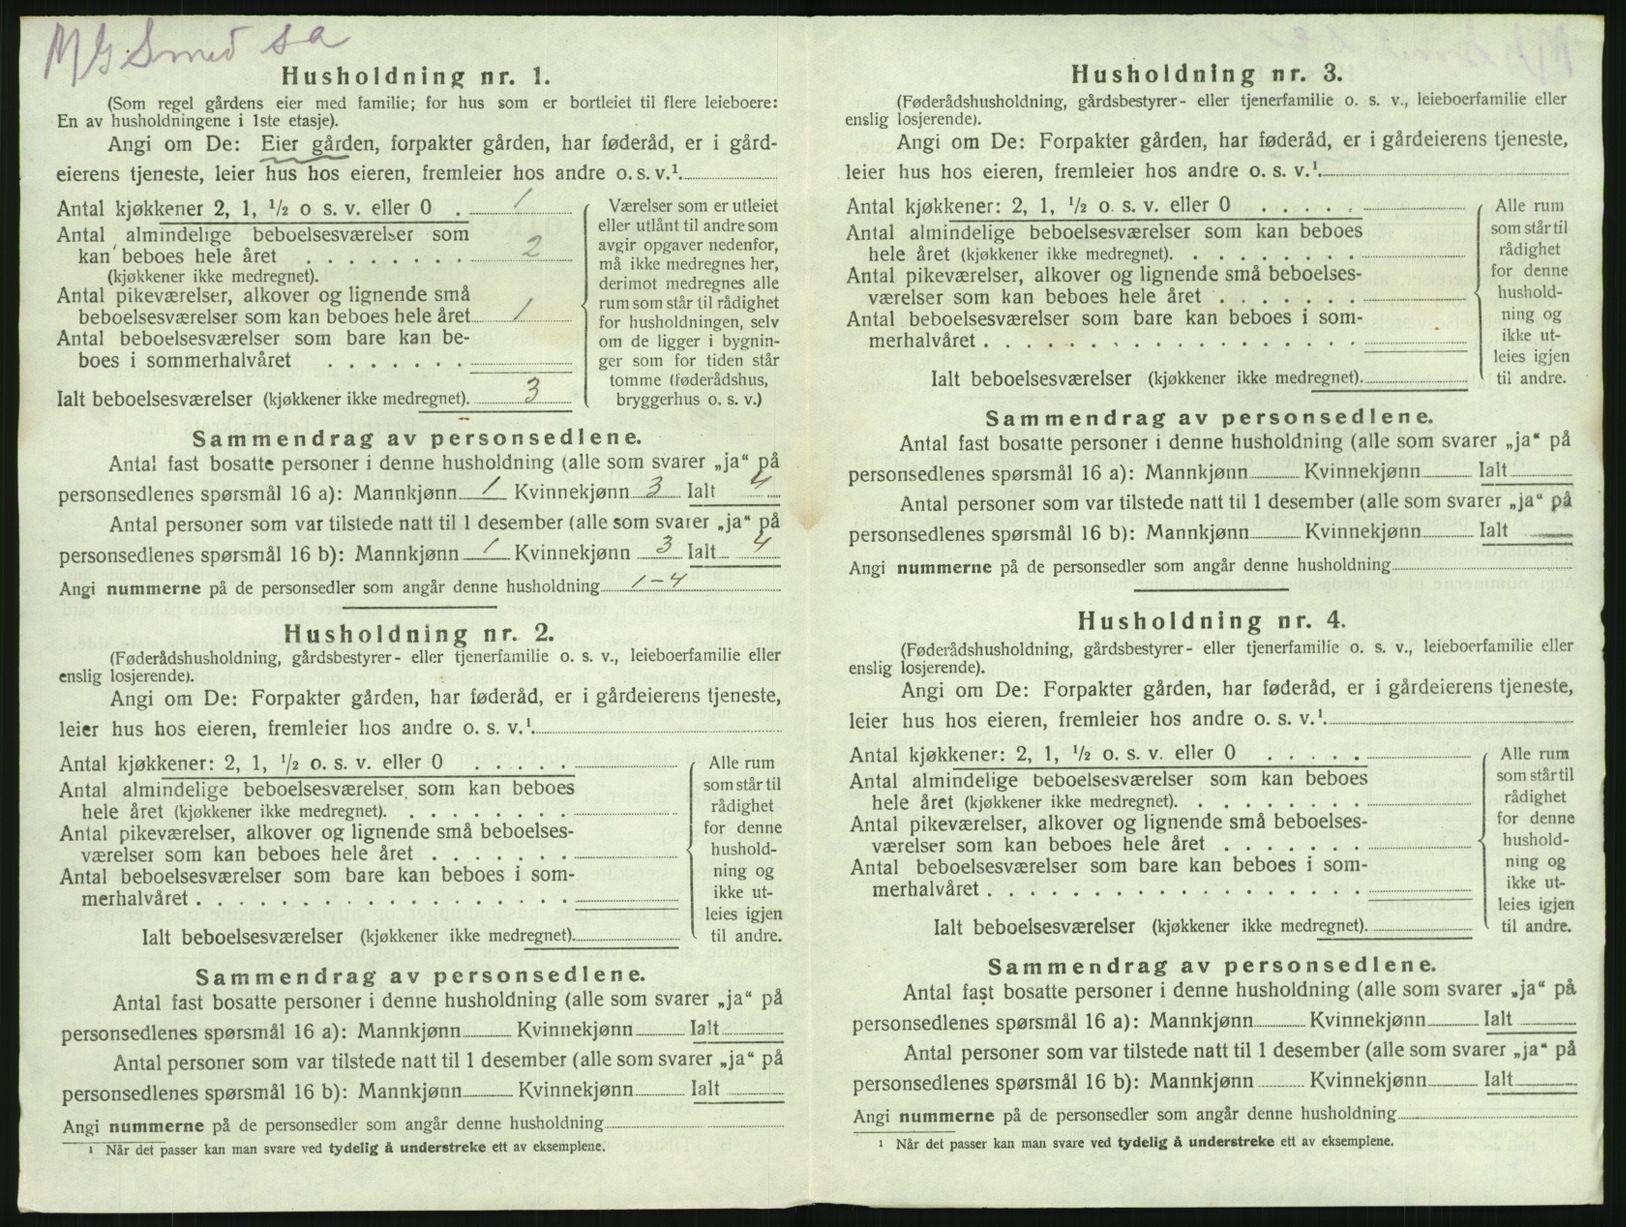 M G Smed sa
Husholdning nr. 1.
(Som regel gårdens eier med familie; for hus som er bortleiet til flere leieboere:
En av husholdningene i 1ste etasje).
Angi om De: Eier gården, forpakter gården, har føderåd, er i gård-
eierens tjeneste, leier hus hos eieren, fremleier hos andre o. s. v.¹
Antal kjøkkener 2, 1, ½ o s. v. eller 0 . 1
Antal almindelige beboelsesværelser som
kan beboes hele året . . . . . . . . 2
(kjøkkener ikke medregnet).
Antal pikeværelser, alkover og lignende små
beboelsesværelser som kan beboes hele året 1
Antal beboelsesværelser som bare kan be-
boes i sommerhalvåret . . . . . . .
Ialt beboelsesværelser (kjøkkener ikke medregnet). 3
Værelser som er utleiet
eller utlånt til andre som
avgir opgaver nedenfor,
må ikke medregnes her,
derimot medregnes alle
rum som står til rådighet
for husholdningen, selv
om de ligger i bygnin-
ger som for tiden står
tomme (føderådshus,
bryggerhus o. s. v.)
Sammendrag av personsedlene.
Antal fast bosatte personer i denne husholdning (alle som svarer „ja“ på
personsedlenes spørsmål 16 a): Mannkjønn 1 Kvinnekjønn 3 Ialt 4
Antal personer som var tilstede natt til 1 desember (alle som svarer „ja“ på
personsedlenes spørsmål 16 b): Mannkjønn 1 Kvinnekjønn 3 Ialt 4
Angi nummerne på de personsedler som angår denne husholdning 1-4
Husholdning nr. 2.
(Føderådshusholdning, gårdsbestyrer- eller tjenerfamilie o. s. v., leieboerfamilie eller
enslig losjerende).
Angi om De: Forpakter gården, har føderåd, er i gårdeierens tjeneste,
leier hus hos eieren, fremleier hos andre o. s. v.¹
Antal kjøkkener: 2, 1, ½ o. s. v. eller 0 . . . . .
Antal almindelige beboelsesværelser som kan beboes
hele året (kjøkkener ikke medregnet). . . . . . . . .
Antal pikeværelser, alkover og lignende små beboelses-
værelser som kan beboes hele året . . . . . . .
Antal beboelsesværelser som bare kan beboes i som-
merhalvåret . . . . . . . . . . . . . . . . . .
Ialt beboelsesværelser (kjøkkener ikke medregnet).
Alle rum
som står til
rådighet
for denne
hushold-
ning og
ikke ut-
leies igjen
til andre.
Sammendrag av personsedlene.
Antal fast bosatte personer i denne husholdning (alle som svarer „ja“ på
personsedlenes spørsmål 16 a): Mannkjønn Kvinnekjønn Ialt
Antal personer som var tilstede natt til 1 desember (alle som svarer „ja“ på
personsedlenes spørsmål 16 b): Mannkjønn Kvinnekjønn Ialt
Angi nummerne på de personsedler som angår denne husholdning
¹ Når det passer kan man svare ved tydelig å understreke ett av eksemplene.
Husholdning nr. 3.
(Føderådshusholdning, gårdsbestyrer- eller tjenerfamilie o. s. v., leieboerfamilie eller
enslig losjerende).
Angi om De: Forpakter gården, har føderåd, er i gårdeierens tjeneste,
leier hus hos eieren, fremleier hos andre o. s. v.¹
Antal kjøkkener: 2, 1, ½ o. s. v. eller 0 . . . . .
Antal almindelige beboelsesværelser som kan beboes
hele året (kjøkkener ikke medregnet). . . . . . . . .
Antal pikeværelser, alkover og lignende små beboelses-
værelser som kan beboes hele året . . . . . . .
Antal beboelsesværelser som bare kan beboes i som-
merhalvåret . . . . . . . . . . . . . . . . . .
Ialt beboelsesværelser (kjøkkener ikke medregnet).
Alle rum
som står til
rådighet
for denne
hushold-
ning og
ikke ut-
leies igjen
til andre.
Sammendrag av personsedlene.
Antal fast bosatte personer i denne husholdning (alle som svarer „ja“ på
personsedlenes spørsmål 16 a): Mannkjønn Kvinnekjønn Ialt
Antal personer som var tilstede natt til 1 desember (alle som svarer „ja“ på
personsedlenes spørsmål 16 b): Mannkjønn Kvinnekjønn Ialt
Angi nummerne på de personsedler som angår denne husholdning
Husholdning nr. 4.
(Føderådshusholdning, gårdsbestyrer- eller tjenerfamilie o. s. v., leieboerfamilie eller
enslig losjerende).
Angi om De: Forpakter gården, har føderåd, er i gårdeierens tjeneste,
leier hus hos eieren, fremleier hos andre o. s. v.¹
Antal kjøkkener: 2, 1, ½ o. s. v. eller 0 . . . . .
Antal almindelige beboelsesværelser som kan beboes
hele året (kjøkkener ikke medregnet). . . . . . . . .
Antal pikeværelser, alkover og lignende små beboelses-
værelser som kan beboes hele året . . . . . . .
Antal beboelsesværelser som bare kan beboes i som-
merhalvåret . . . . . . . . . . . . . . . . . .
Ialt beboelsesværelser (kjøkkener ikke medregnet).
Alle rum
som står til
rådighet
for denne
hushold-
ning og
ikke ut-
leies igjen
til andre.
Sammendrag av personsedlene.
Antal fast bosatte personer i denne husholdning (alle som svarer „ja“ på
personsedlenes spørsmål 16 a): Mannkjønn Kvinnekjønn Ialt
Antal personer som var tilstede natt til 1 desember (alle som svarer „ja“ på
personsedlenes spørsmål 16 b): Mannkjønn Kvinnekjønn Ialt
Angi nummerne på de personsedler som angår denne husholdning
¹ Når det passer kan man svare ved tydelig å understreke ett av eksemplene.